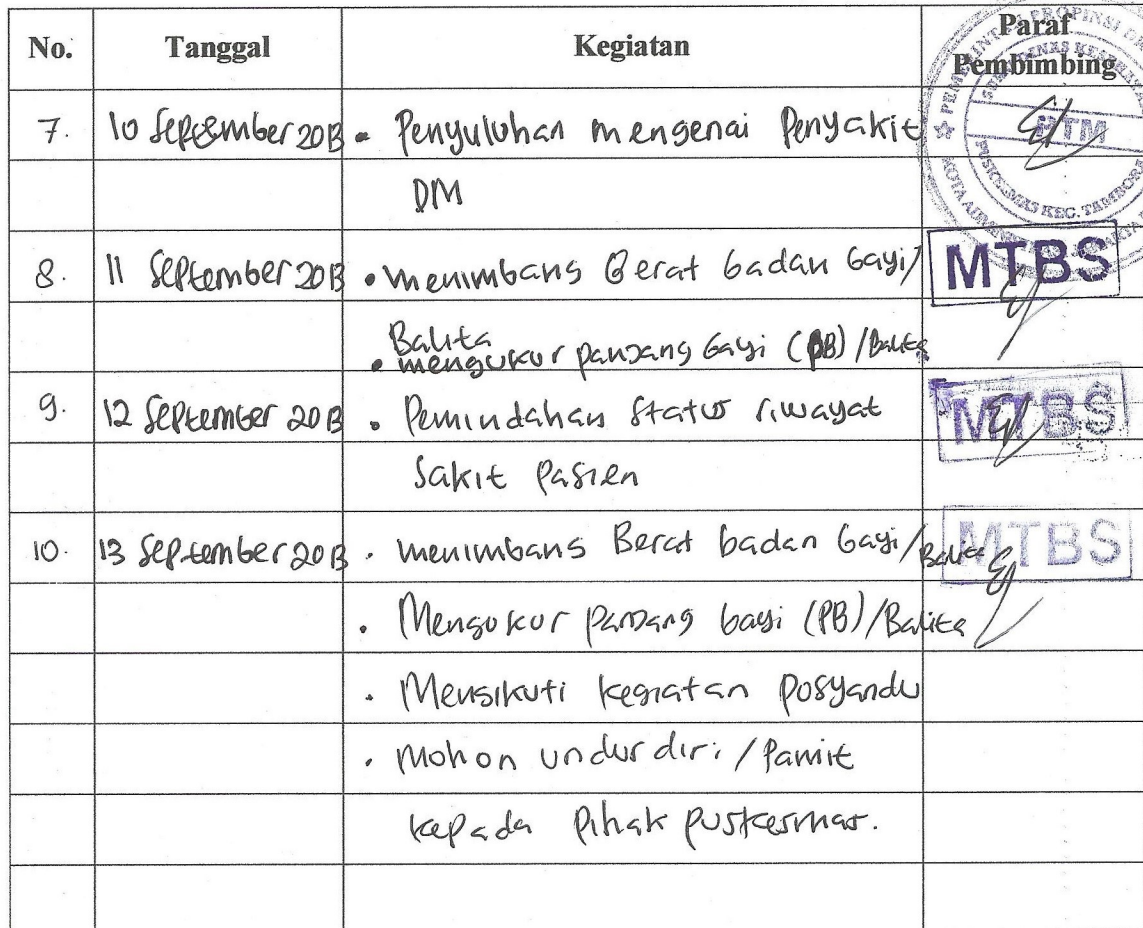 No. Tanggal Kegiatan Paraf Pembimbing
7. 10 September 2013 • Penyuluhan mengenai Penyakit
DM
8. 11 September 2013 • menimbang Berat badan bayi/
Balita
• mengukur panjang bayi (PB)/Balita
9. 12 September 2013 • Pemindahan Status riwayat
Sakit Pasien
10. 13 September 2013 • menimbang Berat badan bayi/Balita
• Mengukur panjang bayi (PB)/Balita
• Mengikuti kegiatan posyandu
• Mohon undur diri/Pamit
kepada Pihak puskesmas.
PTM
PUSKESMAS KEC. TAMBORA
MTBS
MTBS
MTBS